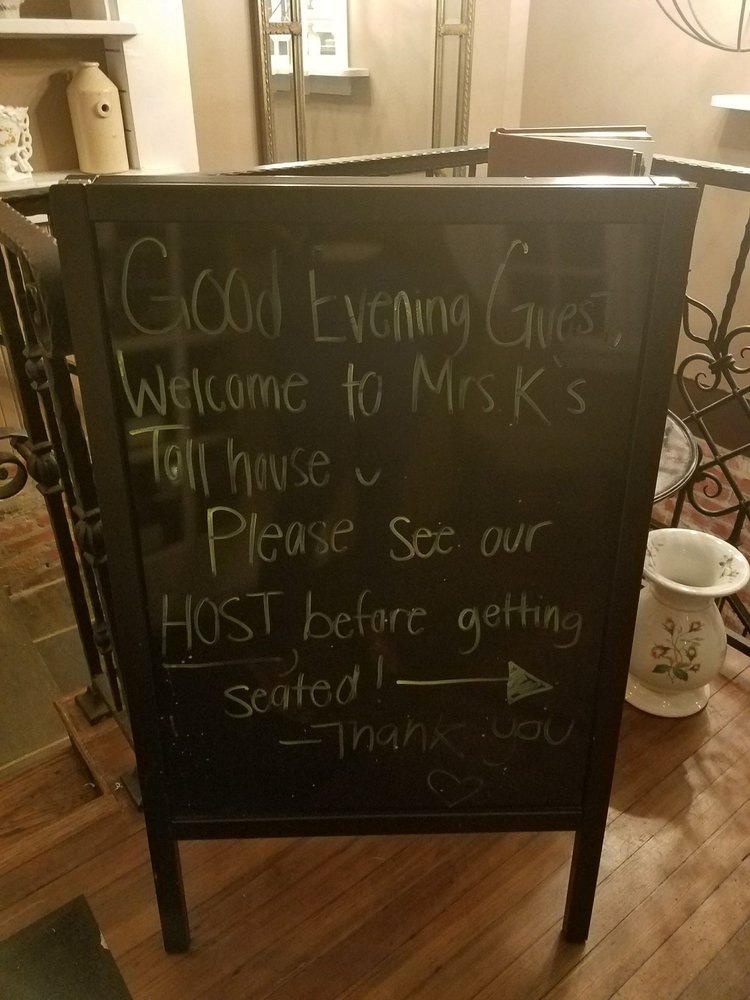 Good Evening Guest,
Welcome to Mrs. K's
Toll house
Please see our
HOST before getting
seated!
-Thank you